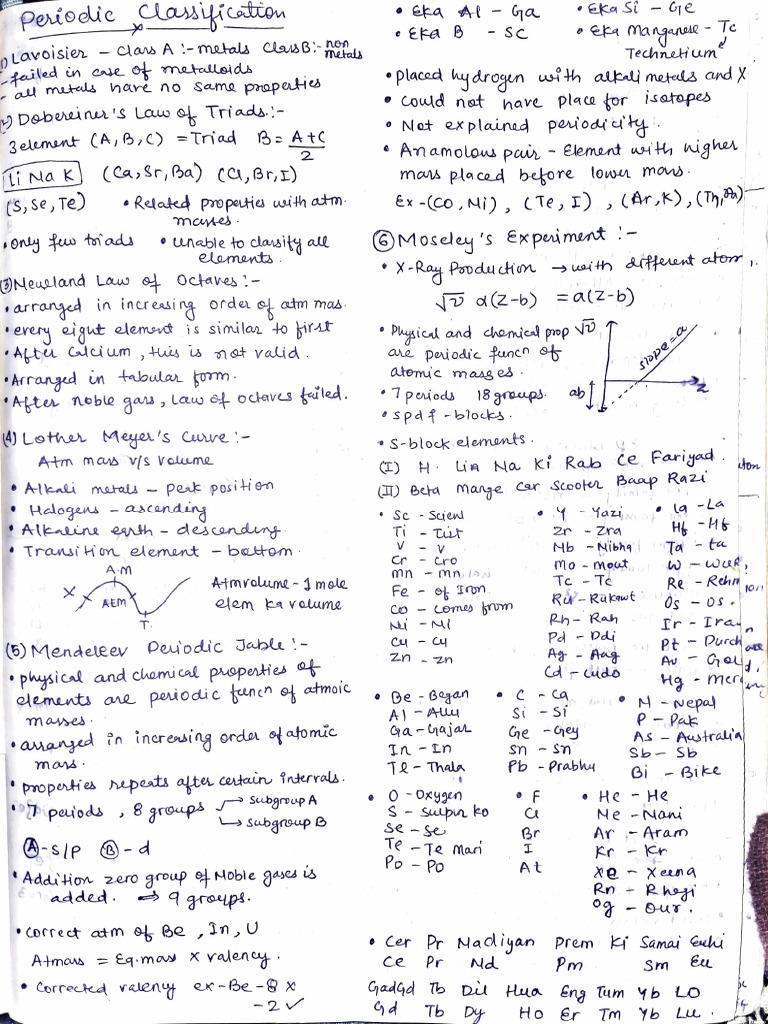 Periodic Classification
1) Lavoisier - Class A :- metals Class B:- non metals
- failed in case of metalloids
- all metals have no same properties
2) Dobereiner's Law of Triads:-
3 element (A, B, C) = Triad B = A+C/2
Li Na K (Ca, Sr, Ba) (Cl, Br, I)
(S, Se, Te) • Related properties with atm. masses.
• Only few triads • unable to classify all elements.
(3) Newland Law of Octaves:-
• arranged in increasing order of atm mas.
• every eight element is similar to first
• After Calcium, this is not valid.
• Arranged in tabular form.
• After noble gass, law of octaves failed.
(4) Lother Meyer's Curve:-
Atm mass v/s volume
• Alkali metals - peak position
• Halogens - ascending
• Alkaline earth - descending
• Transition element - bottom.
A.M
X AEM T.
Atmvolume - 1 mole
elem ka volume
(5) Mendeleev Periodic Table:-
• physical and chemical properties of
elements are periodic funcn of atmoic
masses.
• arranged in increasing order of atomic
mass.
• properties repeats after certain intervals.
• 7 periods, 8 groups → subgroup A
→ subgroup B
A - s/p B - d
• Addition zero group of Noble gases is
added. ⇒ 9 groups.
• Correct atm of Be, In, U
Atmass = Eq. mass x valency.
• Corrected valency ex - Be - 8 x
- 2 ✓
• Eka Al - Ga • Eka Si - Ge
• Eka B - Sc • Eka Manganese - Tc
Technetium
• placed hydrogen with alkali metals and X
• Could not have place for isotopes
• Not explained periodicity.
• Anamolous pair - Element with higher
mass placed before lower mass.
Ex - (Co, Ni), (Te, I), (Ar, K), (Th, Pa)
(6) Moseley's Experiment :-
• X-Ray Pooduction → with different atom
√ν α (Z-b) = a(Z-b)
• Physical and chemical prop
are periodic funcn of
atomic masses.
√ν slope = a ab Z
• 7 periods 18 groups.
• s p d f - blocks.
• S-block elements.
(I) H. Lia Na Ki Rab Ce Fariyad.
(II) Beta Mange Car Scooter Baap Razi
• Sc - Scien
Ti - Tist
V - V
Cr - Cro
mn - mn
Fe - of Iron
Co - comes from
Ni - Ni
Cu - Cu
Zn - Zn
• Y - Yazi
Zr - Zra
Nb - Nibha
Mo - mout
Tc - Tc
Ru - Rukawt
Rh - Rah
Pd - Ddi
Ag - Aag
Cd - Cudo
• La - La
Hf - Hf
Ta - ta
W - wuk
Re - Rehn
Os - Os.
Ir - Ira
Pt - Durch
Au - Gol
Hg - Mer
• Be - Began
Al - Allu
Ga - Gajar
In - In
Tl - Thala
• C - Ca
Si - Si
Ge - Gey
Sn - Sn
Pb - Prabhu
• N - Nepal
P - Pak
As - Australia
Sb - Sb
Bi - Bike
• O - Oxygen
S - Sulpur ko
Se - Se
Te - Te Mari
Po - Po
• F
Cl
Br
I
At
• He - He
Ne - Nani
Ar - Aram
Kr - Kr
Xe - Xeena
Rn - Rhegi
Og - Our.
• Cer Pr Nadiyan Prem Ki Samai Euhi
Ce Pr Nd Pm Sm Eu
GadGd Tb Dil Hua Eng Tum Yb LO
Gd Tb Dy Ho Er Tm Yb Lu.